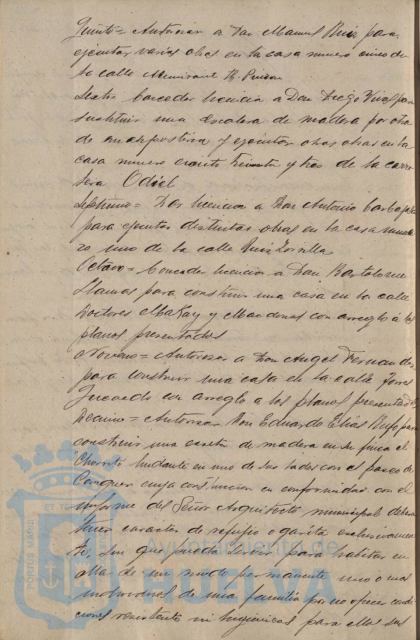 Quinto = Autorizar a Don Manuel Ruiz para
ejecutar varias obras en la casa numero cinco de
la calle Almirante H. Pinzon
Sexto Conceder licencia a Don Diego Vival para
sustituir una escalera de madera por otra
de mamposteria y ejecutar otras obras en la
casa numero ciento treinta y tres de la carre
tera Odiel
Septimo = Dar licencia a Don Antonio Carbajal
para ejecutar distintas obras en la casa nume
ro uno de la calle Ruiz Zorrilla
Octavo = Conceder licencia a Don Bartolome
Llamas para construir una casa en la calle
Doctores y Cardenas con arreglo á los
planos presentados
Noveno = Autorizar a Don Angel Fernandez
para construir una casa en la calle Jose
con arreglo a los planos presentados
Decimo = Autorizar Don Eduardo Elias Rufo para
construir una caseta de madera en su finca el
Chorrito lindante en uno de sus lados con el paseo de
Conquero cuya construccion en conformidad con el
informe del Señor Arquitecto municipal deberá
tener caracter de refugio o garita exclusivamen
te, sin que pueda servir para habitar en
ella de un modo permanente uno o mas
individuos de una familia por no ofrecer condi
ciones ni higienicas para ellos sus
Ayuntamiento de
HUELVA